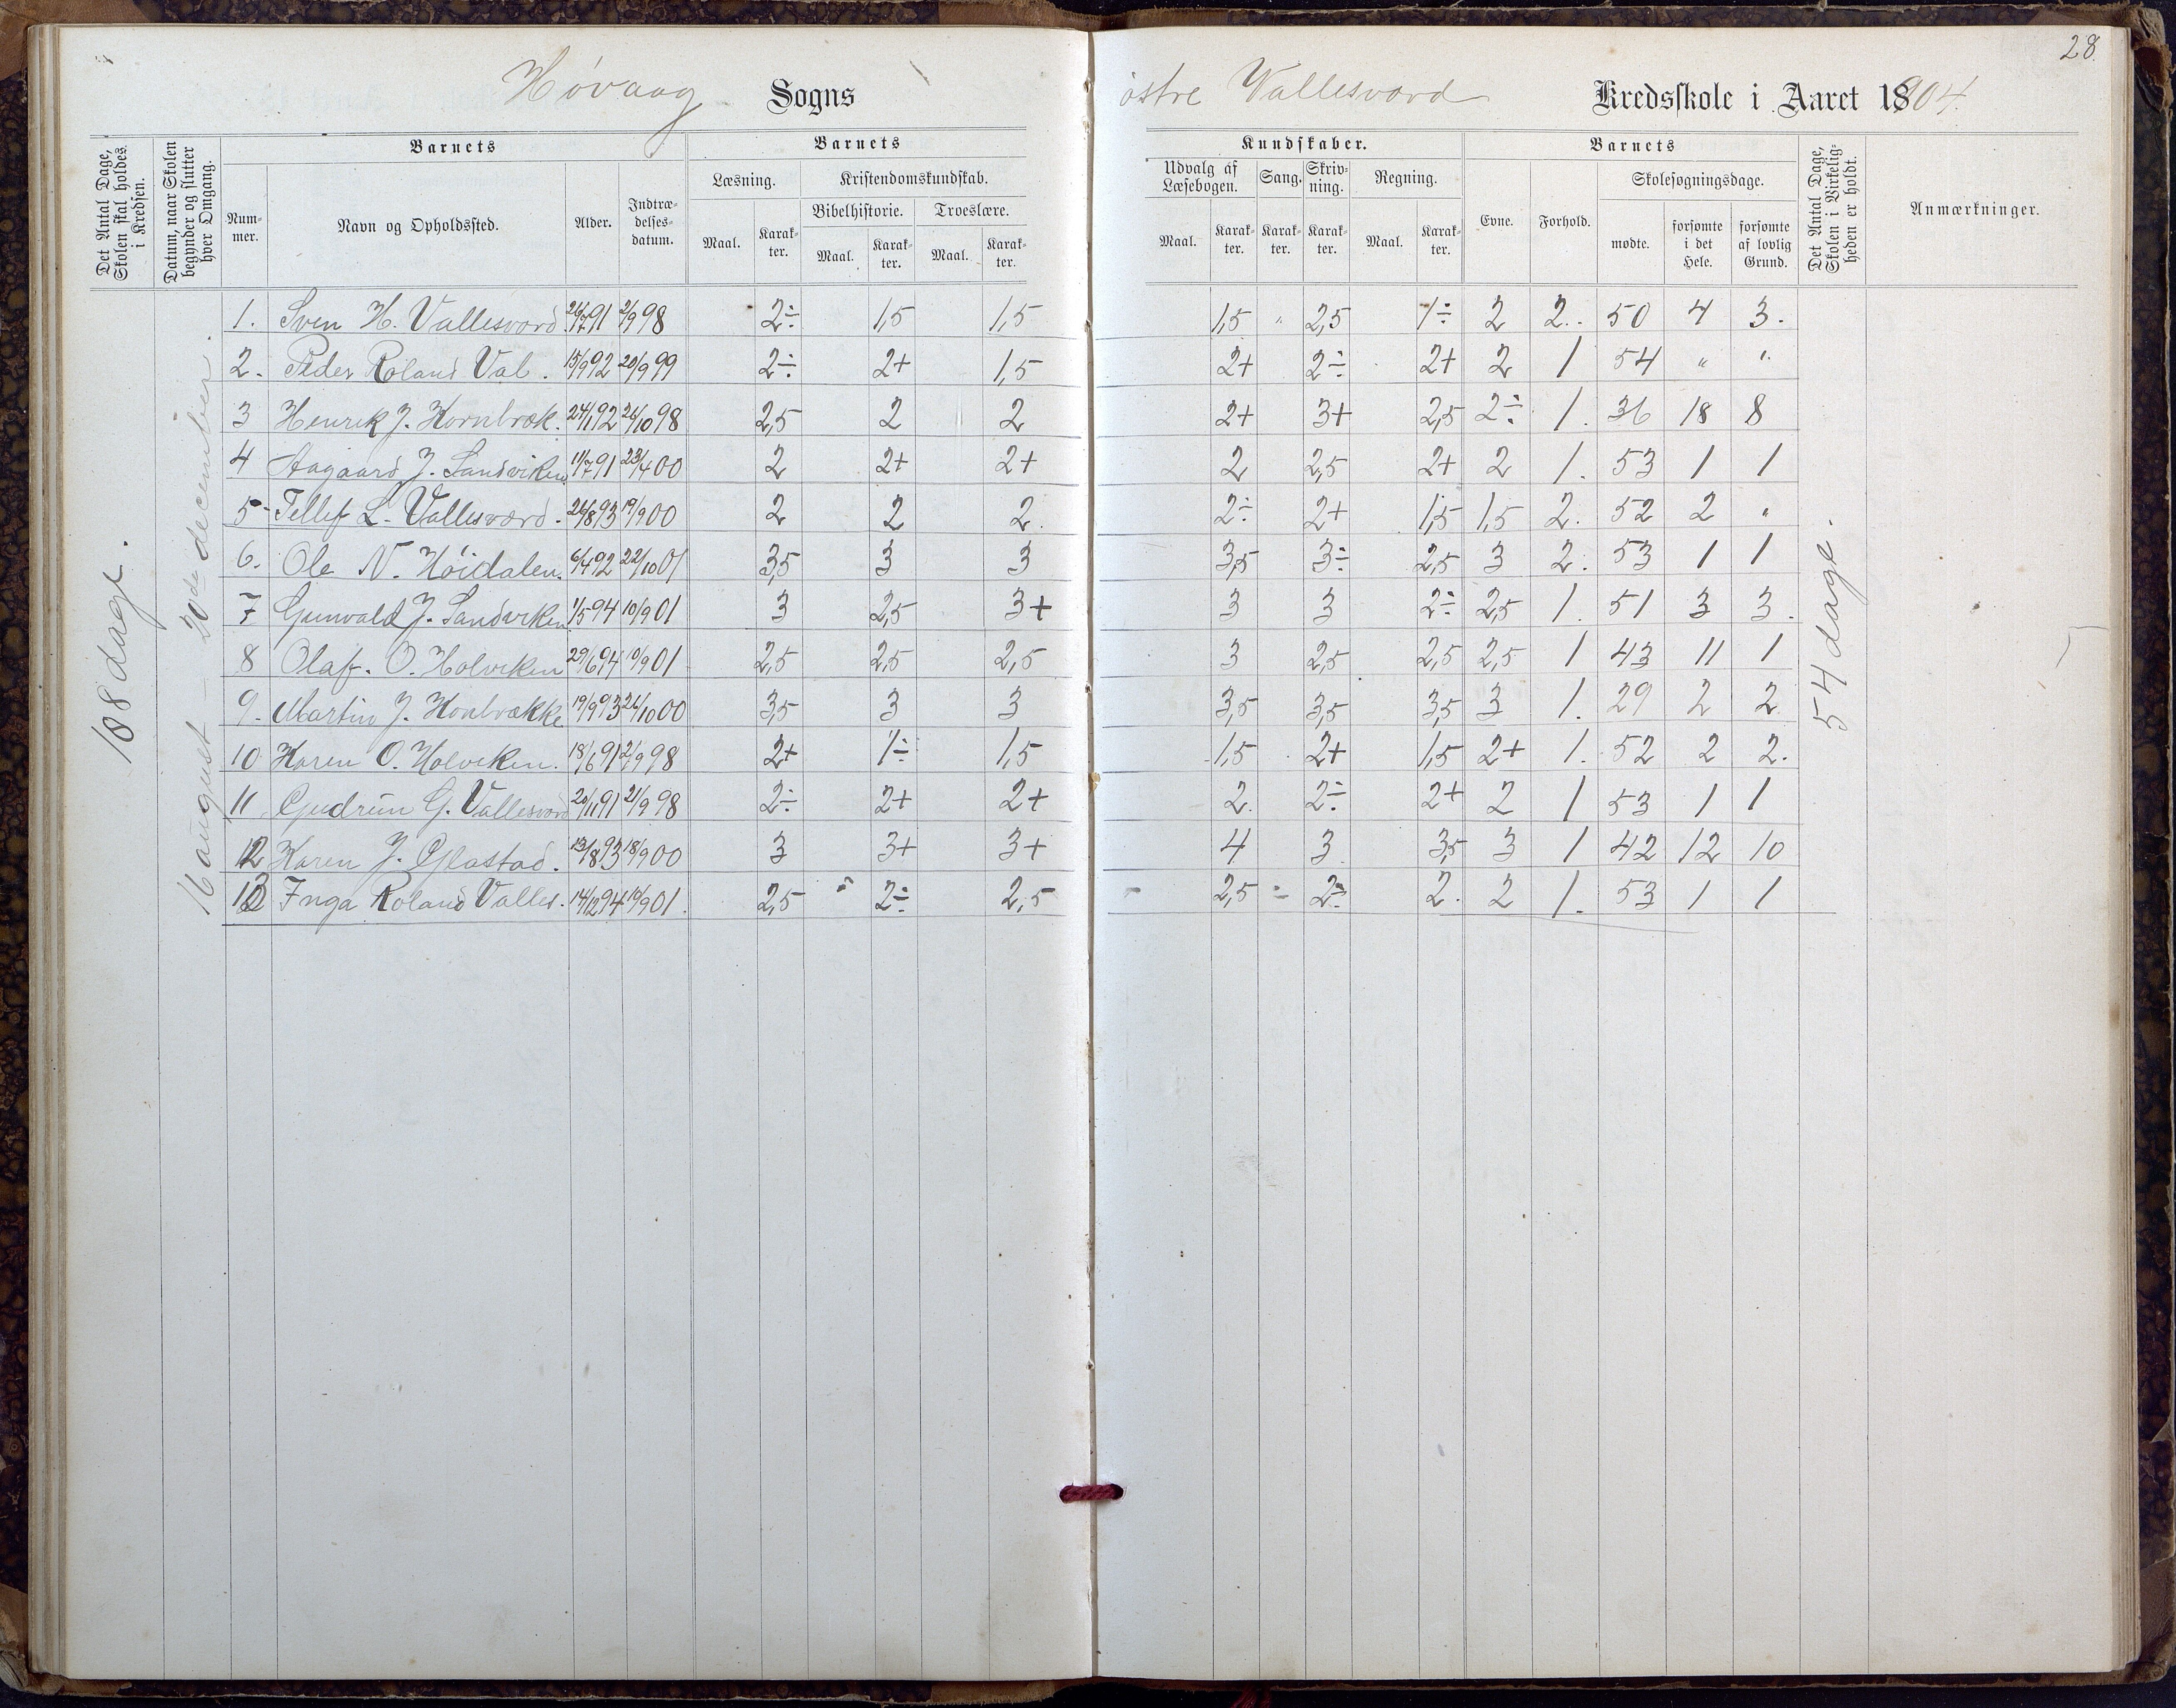 28
Høvaag Sogns østre Vallesværd Kredsskole i Aaret 1904.
Det Antal Dage, Skolen skal holdes i Kredsen.
Datum, naar Skolen begynder og slutter hver Omgang.
Barnets
Num- mer.
Navn og Opholdssted.
Alder.
Indtræ- delses- datum.
Barnets
Læsning.
Maal.
Karak- ter.
Kristendomskundskab.
Bibelhistorie.
Maal.
Karak- ter.
Troeslære.
Maal.
Karak- ter.
Kundskaber.
Udvalg af Læsebogen.
Maal.
Karak- ter.
Sang.
Karak- ter.
Skriv- ning.
Karak- ter.
Regning.
Maal.
Karak- ter.
Barnets
Evne.
Forhold.
Skolesøgningsdage.
mødte.
forsømte i det Hele.
forsømte af lovlig Grund.
Det Antal Dage, Skolen i Virkelig- heden er holdt.
Anmærkninger.
108 dage.
16 august – 20de december.
1. Sven H. Vallesværd. 26/7 91 2/9 98 2÷ 1,5 1,5 1,5 " 2,5 1÷ 2 2. 50 4 3.
2. Peder Roland Val. 15/9 92 20/9 99 2÷ 2+ 1,5 2+ 2÷ 2+ 2 1 54 " "
3 Henrik J. Hornbræk. 24/1 92 26/10 98 2,5 2 2 2+ 3+ 2,5 2÷ 1. 36 18 8
4 Aagaard J. Sandviken 11/7 91 23/4 00 2 2+ 2+ 2 2,5 2+ 2 1. 53 1 1
5 Tellef L. Vallesværd. 26/8 93 19/9 00 2 2 2. 2÷ 2+ 1,5 1,5 2. 52 2 "
6. Ole N. Høidalen. 6/4 92 22/10 01 3,5 3 3 3,5 3÷ 2,5 3 2. 53 1 1
7 Gunvald J. Sandviken 1/5 94 10/9 01 3 2,5 3+ 3 3 2÷ 2,5 1. 51 3 3.
8 Olaf. O. Holviken 29/6 94 10/9 01 2,5 2,5 2,5 3 2,5 2,5 2,5 1 43 11 1
9. Martin J. Honbrække 19/9 93 26/10 00 3,5 3 3 3,5 3,5 3,5 3 1. 29 2 2
10 Karen O. Holviken. 18/6 91 2/9 98 2+ 1÷ 1,5 1,5 2+ 1,5 2+ 1. 52 2 2.
11 Gudrun G. Vallesværd 20/11 91 2/9 98 2÷ 2+ 2+ 2. 2÷ 2+ 2 1 53 1 1
12 Karen J. Glastad. 13/8 93 18/9 00 3 3+ 3+ 4 3 3,5 3 1 42 12 10
13 Inga Roland Valles. 14/12 94 10/9 01. 2,5 2÷ 2,5 2,5 2÷ 2. 2 1. 53 1 1
54 dage.